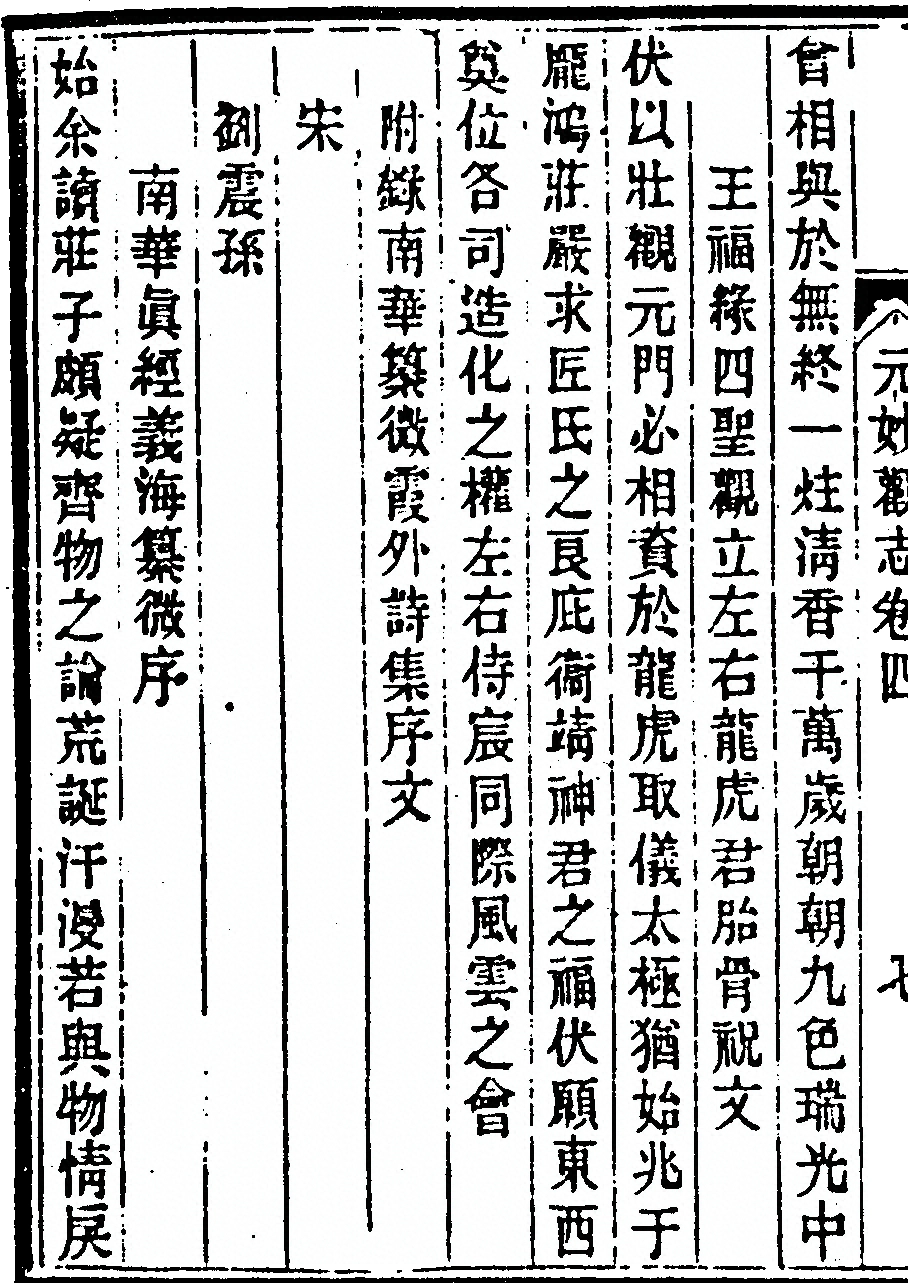 元妙觀志卷四
會相與於無終一炷清香千萬歲朝朝九色瑞光中
王福緣四聖觀立左右龍虎君胎骨祝文
伏以壯觀元門必相資於龍虎取儀太極猶始兆于
龎鴻莊嚴求匠氏之良庇衞靖神君之福伏願東西
奠位各司造化之權左右侍宸同際風雲之會
附錄南華纂微霞外詩集序文
宋
劉震孫
南華眞經義海纂微序
始余讀莊子頗疑齊物之論荒誕汗漫若與物情戾